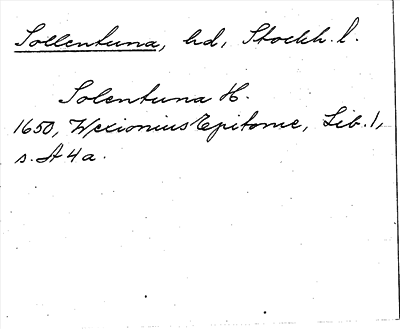 Sollentuna, hd, Stockh. l.
Solentuna H.
1650, Wexionius Epitome, Lib. 1,
s. A 4 a.